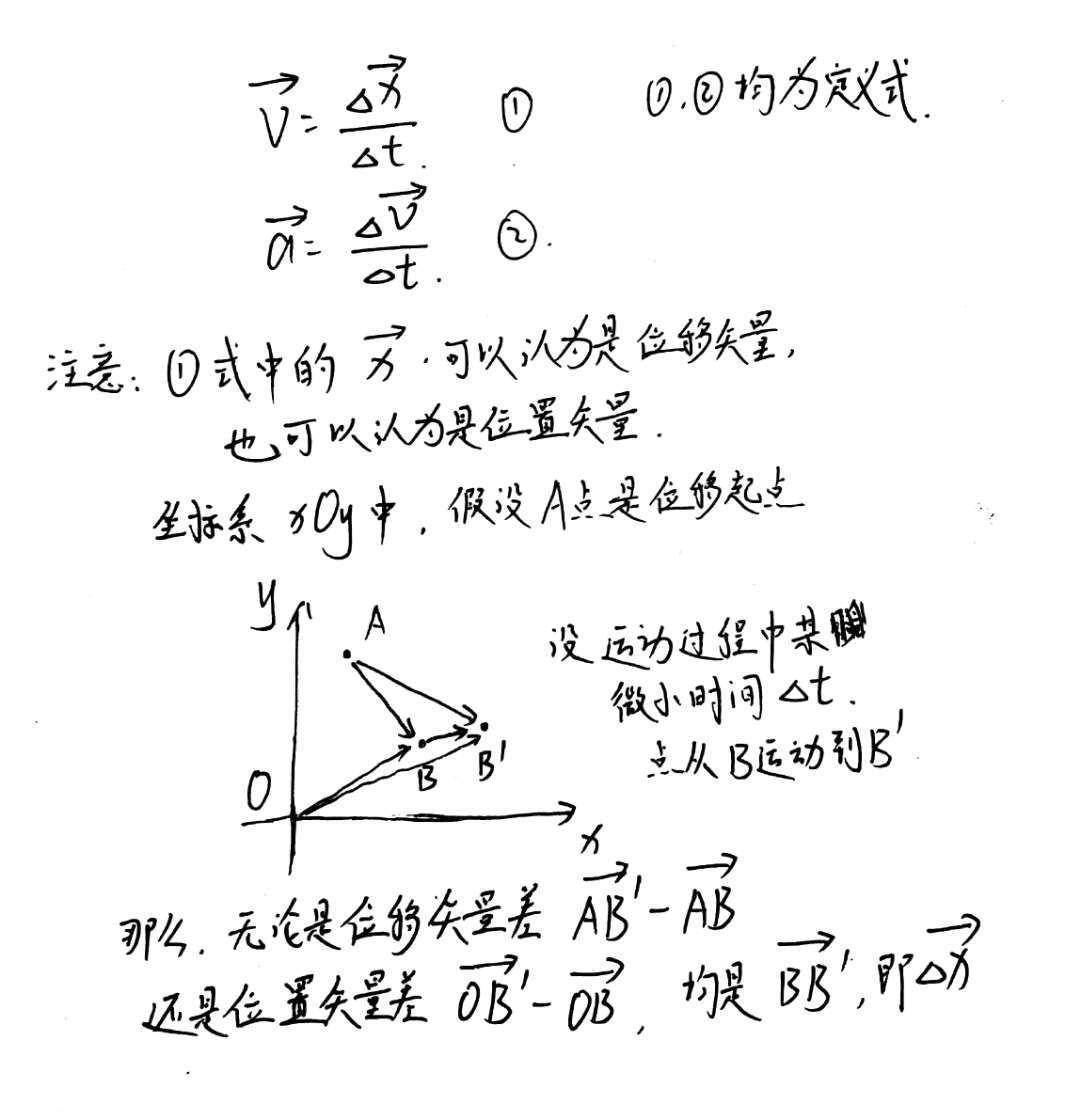 V⃗ = Δx⃗/Δt. ① ①.②均为定义式.
a⃗ = ΔV⃗/Δt. ②.
注意: ①式中的 x⃗ 可以认为是位移矢量,
也可以认为是位置矢量.
坐标系 xOy中, 假设A点是位移起点
y
A
设运动过程中某
微小时间 Δt.
点从B运动到B′
B B′
O
x
那么, 无论是位移矢量差 AB′⃗ - AB⃗
还是位置矢量差 OB′⃗ - OB⃗, 均是 BB′⃗, 即Δx⃗